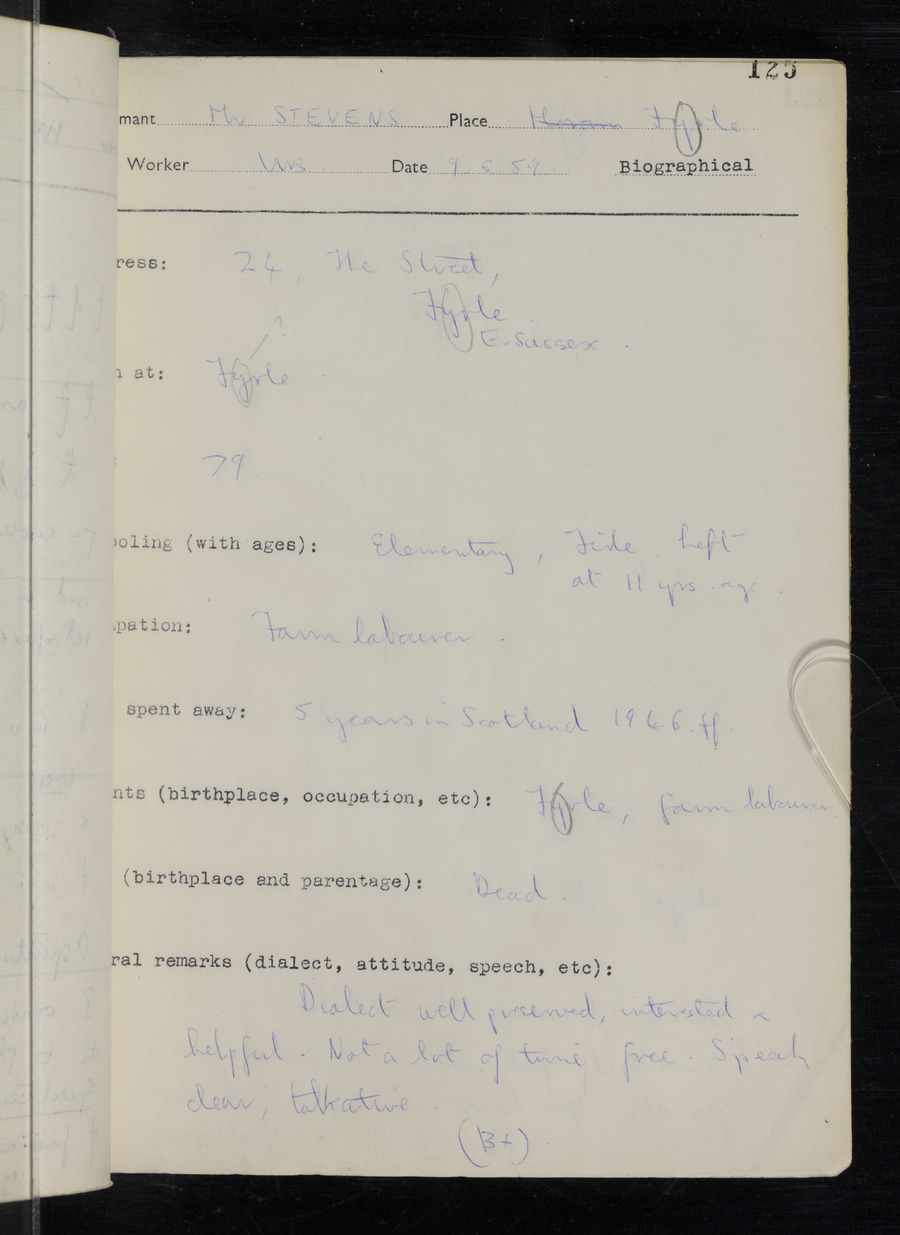 125
mant Mr STEVENS Place Horam Fyrle
Worker WB Date 9.5.59. Biographical
ress: 24, The Street,
Fyrle
E. Sussex.
?
n at: Fyrle.
79
ooling (with ages): Elementary, Firle. Left
at 11 yrs. age.
pation: Farm labourer.
spent away: 5 years in Scotland 1946.ff.
nts (birthplace, occupation, etc): Fyrle, farm labourer
(birthplace and parentage): Dead.
ral remarks (dialect, attitude, speech, etc):
Dialect well preserved, interested &
helpful. Not a lot of time free. Speech
clear, talkative.
(B+)